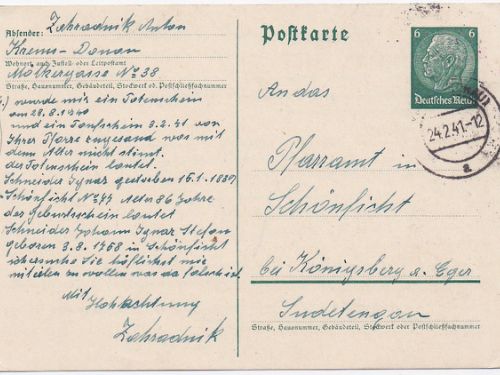 Absender: Zahradnik Anton
Krems-Donau
Wohnort, auch Zustell- oder Leitpostamt
Molkergasse No 38
Straße, Hausnummer, Gebäudeteil, Stockwerk od. Postschließfachnummer
wurde mir ein Totenschein
am 28.8.1940
und ein Taufschein 3.2.41 von
Ihrer Pfarre zugesand was mit
dem Alter nicht stimt.
der Totenschein lautet
Schneider Ignaz gestorben 15.1.1839
Schönficht No 44 Alter 86 Jahre
der Geburtsschein lautet
Schneider Johann Ignaz Stefan
geboren 3.8.1768 in Schönficht
ich ersuche Sie höflichst mir
mitteilen zu wollen was da falsch ist.
Mit
Hochachtung
Zahradnik
Postkarte
6 6
Deutsches Reich
24.2.41.-12
a
An das
Pfarramt in
Schönficht
bei Königsberg a. Eger
Sudetengau
Straße, Hausnummer, Gebäudeteil, Stockwerk oder Postschließfachnummer